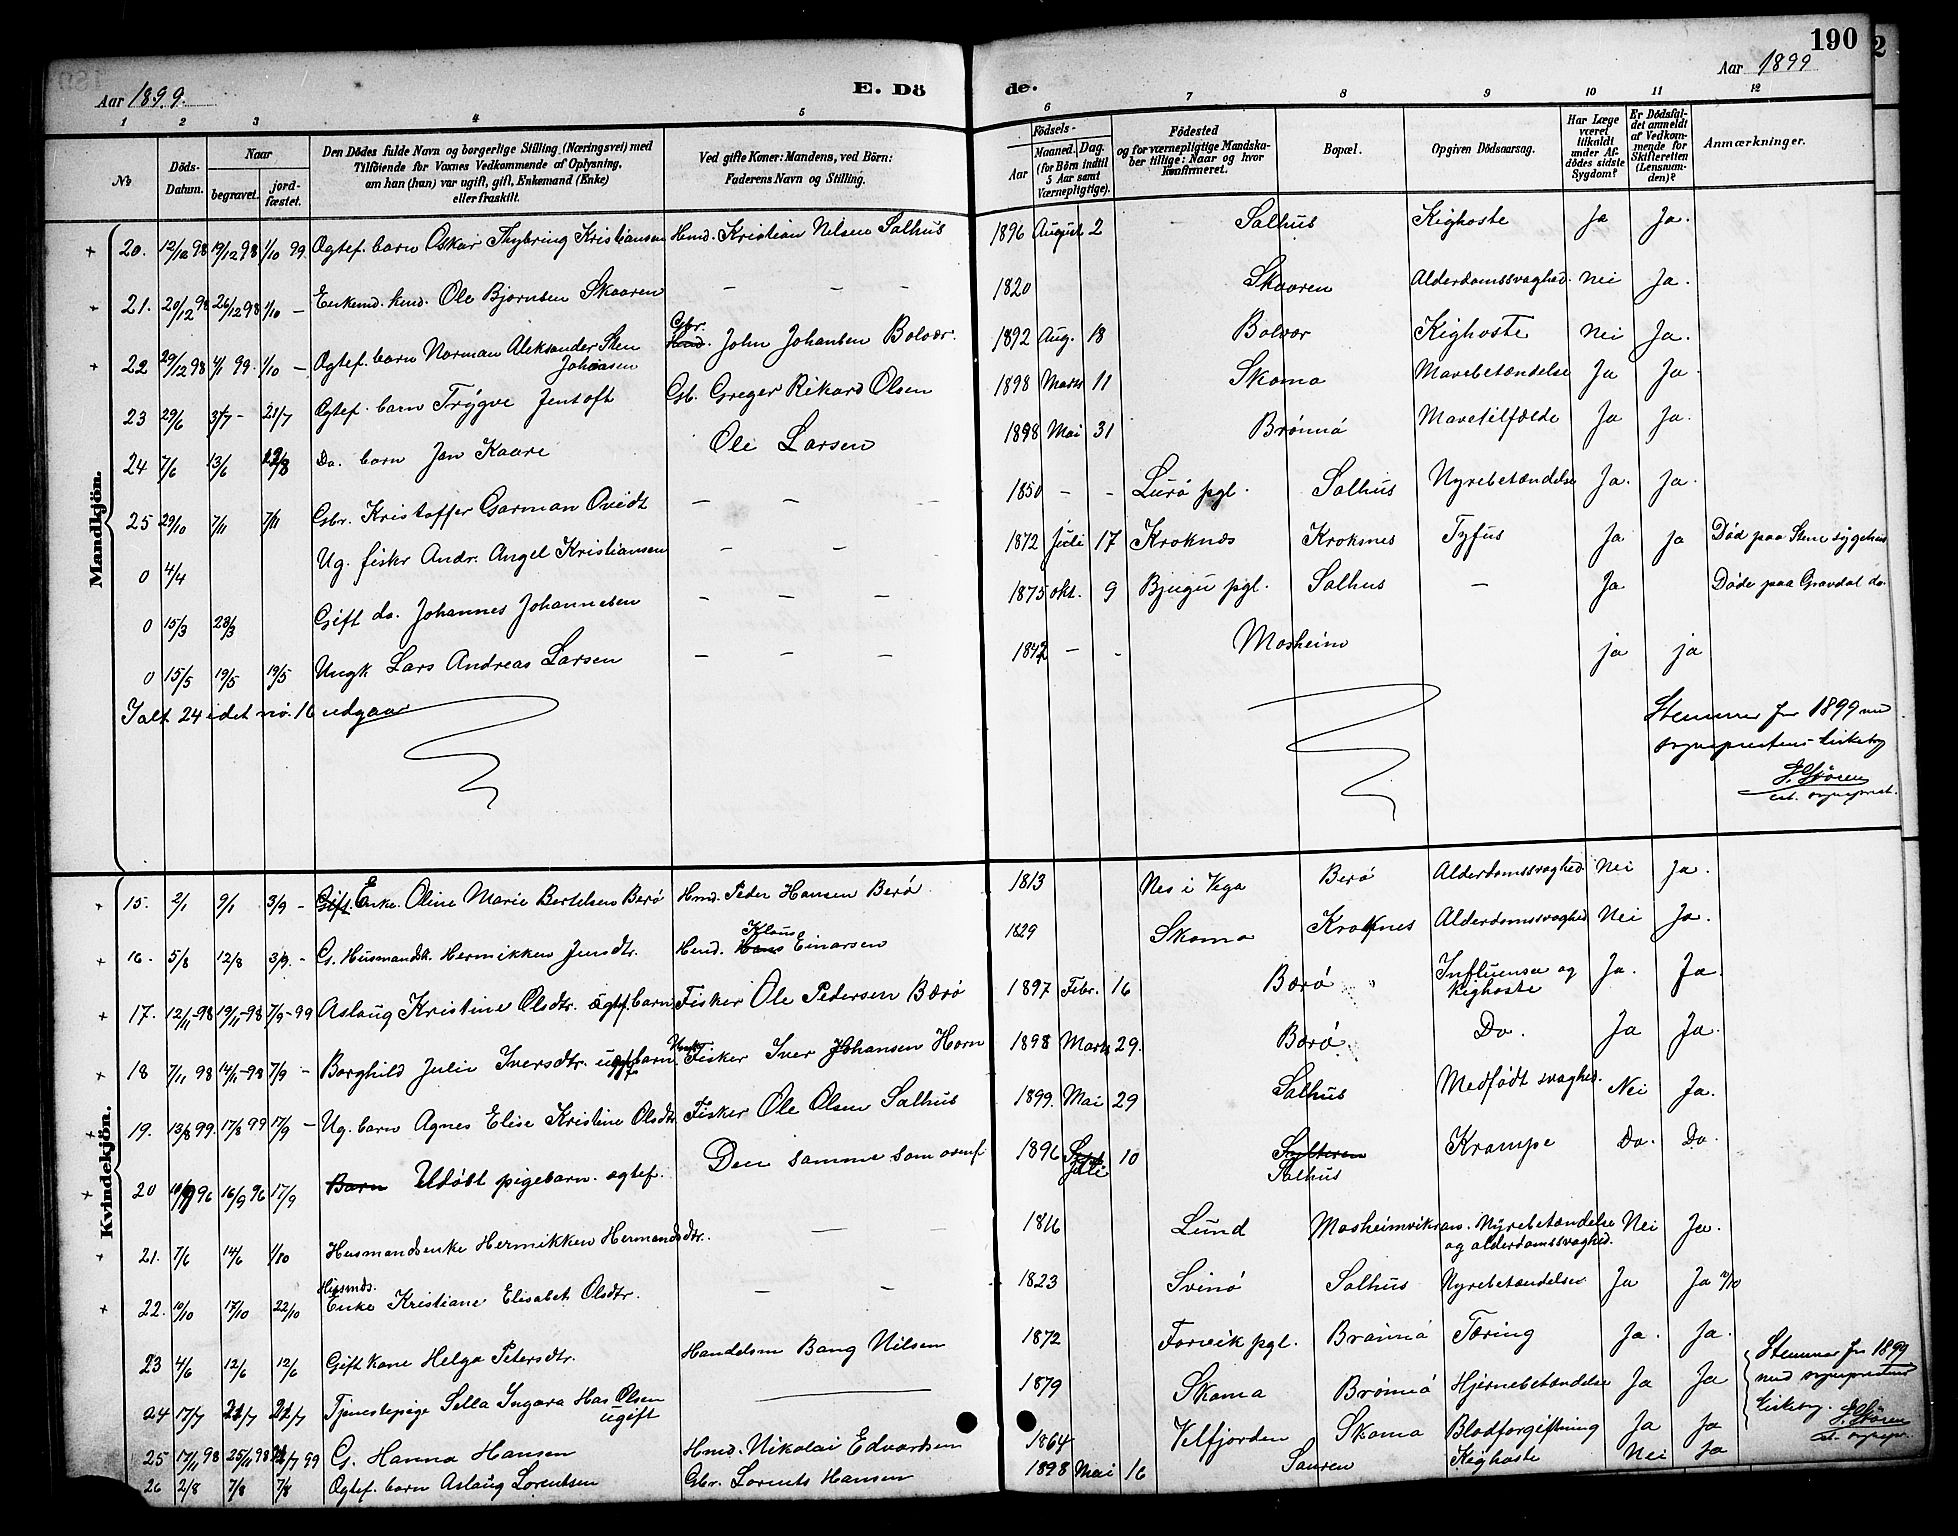 190
Aar 1899.
E. Dö
de.
Aar 1899
1 2 3 4 5 6 7 8 9 10 11 12
No
Döds-Datum.
Naar
begravet.
jordfæstet.
Den Dödes fulde Navn og borgerlige Stilling (Næringsvei) med
Tilföiende for Voxnes Vedkommende af Oplysning,
om han (hun) var ugift, gift, Enkemand (Enke)
eller fraskilt.
Ved gifte Koner: Mandens, ved Börn:
Faderens Navn og Stilling.
Födsels-
Aar
Maaned. Dag.
(for Börn indtil 5 Aar samt Værnepligtige).
Födested
og for værnepligtige Mandskaber tillige: Naar og hvor konfirmeret.
Bopæl.
Opgiven Dödsaarsag.
Har Læge været tilkaldt under Afdödes sidste Sygdom?
Er Dödsfaldet anmeldt af Vedkommende for Skifteretten (Lensmanden)?
Anmærkninger.
Mandkjön.
20. 12/12 98 19/12 98 1/10 99 Ægtef. barn Oskar Thybring Kristiansen Hmd. Kristian Nilsen Salhus 1896 August 2 – Salhus Kighoste Ja Ja.
21. 20/12 98 26/12 98 1/10 – Enkemd. hmd. Ole Bjørnsen Skaaren – – – 1820 Skaaren Alderdomssvaghed. Nei Ja.
22 29/12 98 4/1 99. 1/10 – Ægtef. barn Norman Aleksander Sten Johansen Gbr. John Johansen Bolvær. 1892 Aug. 18 Bolvær Kighoste Nei Ja.
23 29/6 3/7 – 21/7 Ægtef. barn Trygve Jentoft Gb. Greger Rikard Olsen 1898 Marts 11 Skomo Mavebetændelse Ja Ja.
24 7/6 13/6 Do. barn Jan Kaare Ole Larsen 1898 Mai 31 Brønnø Mavetilfælde Ja Ja.
25 29/10 7/11 7/11 Gbr. Kristoffer Garman Qvidt – – – 1850 – – Lurø pgl. Salhus Nyrebetændelse Ja. Ja.
0 4/4 Ug. fisker Andr. Angel Kristiansen – – 1872 Juli 17 Kroknæs Kroksnes Tyfus Ja Ja Død paa Stene sygehus
0 15/3 23/3 Gift do. Johannes Johannesen – – – 1875 okt. 9 Bjugn pgl. Salhus – Ja Døde paa Gravdal do.
0 15/5 19/5 19/5 Ungk Lars Andreas Larsen – – – 1842 – – Mosheim ja ja
Ialt 24 idet no. 16 udgaar
Stemmer for 1899 med
sogneprestens kirkebog
Kvindekjön.
15. 2/1 9/1 3/9 – Gift Enke. Oline Marie Bertelsen Berø Hmd. Peder Hansen Berø 1813 Nes i Vega Berø Alderdomssvaghed Nei Ja.
16. 5/8 12/8 3/9. – G. Husmandsk. Hermikken Jensdtr. Hmd. Hans Klaus Einarsen 1829 Skomo Kroknes Alderdomssvaghed Nei Ja.
17. 12/11 –98 19/11 –98 7/9 –99 Aslaug Kristine Olsdtr. ægtf. barn Fisker Ole Pedersen Bærø 1897 Febr. 16 Bærø Influensa og kighoste Ja. Ja.
18 7/11 98 14/11 –98 7/9 – Borghild Julie Iversdtr. barn. Fisker Iver Johansen Horn 1898 Marts 29. Bærø Do. Ja Ja.
19. 13/8 99. 17/8 99 17/9 – Ug. barn Agnes Elise Kristine Olsdtr. Fisker Ole Olsen Salhus 1899. Mai 29 Salhus Medfødt svaghed. Nei Ja.
20 96 16/9 96 17/9 Barn Udøbt pigebarn. ægtef. Den samme som ovenf 1896 Sept Juli 10 Salhus Krampe Do. Do.
21. 7/6 14/6 1/10 Husmandsenke Hermikken Hermandsdtr. – – 1816 Lund Mosheimviken. Nyrebetændelse og alderdomssvaghed. Nei Ja.
22. 10/10 17/10 22/10 Husmds. Enke Kristiane Elisabet Olsdtr. – – 1823 Svinø Salhus Nyrebetændelse Ja Ja
23 4/6 12/6 12/6 Gift kone Helga Petersdtr. Handelsm Bang Nilsen 1872 Forvik pgl. Brønnø Tæring Ja. Ja.
24 17/7 21/7 21/7 Tjenestepige Sella Ingara Has Olsen ugift 1879 Skomo Brønnø Hjernebetændelse Ja Ja
25 17/11 98 25/11 98 99 G. Hanna Hansen Hmd. Nikolai Edvardsen 1864 Velfjorden Skomo Blodforgiftning Ja Ja
26 2/8 7/8 7/8 Ægtef. barn Aslaug Lorentsen Gbr. Lorents Hansen 1898 Mai 16 Sauren Kighoste Nei Ja
Stemmer for 1899
med sogneprestens
kirkebog.